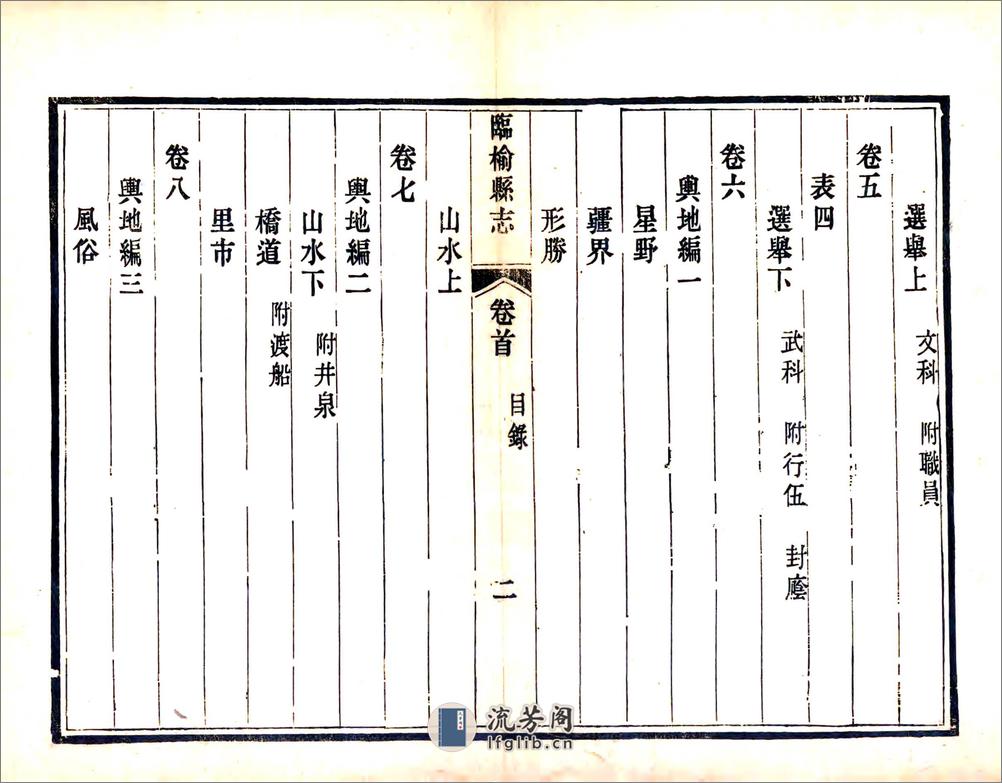 選舉上 文科 附職員
卷五
表四
選舉下 武科 附行伍 封廕
卷六
輿地編一
星野
疆界
形勝
臨榆縣志 卷首 目錄 二
山水上
卷七
輿地編二
山水下 附井泉
橋道 附渡船
里市
卷八
輿地編三
風俗
流芳阁
lfglib.cn